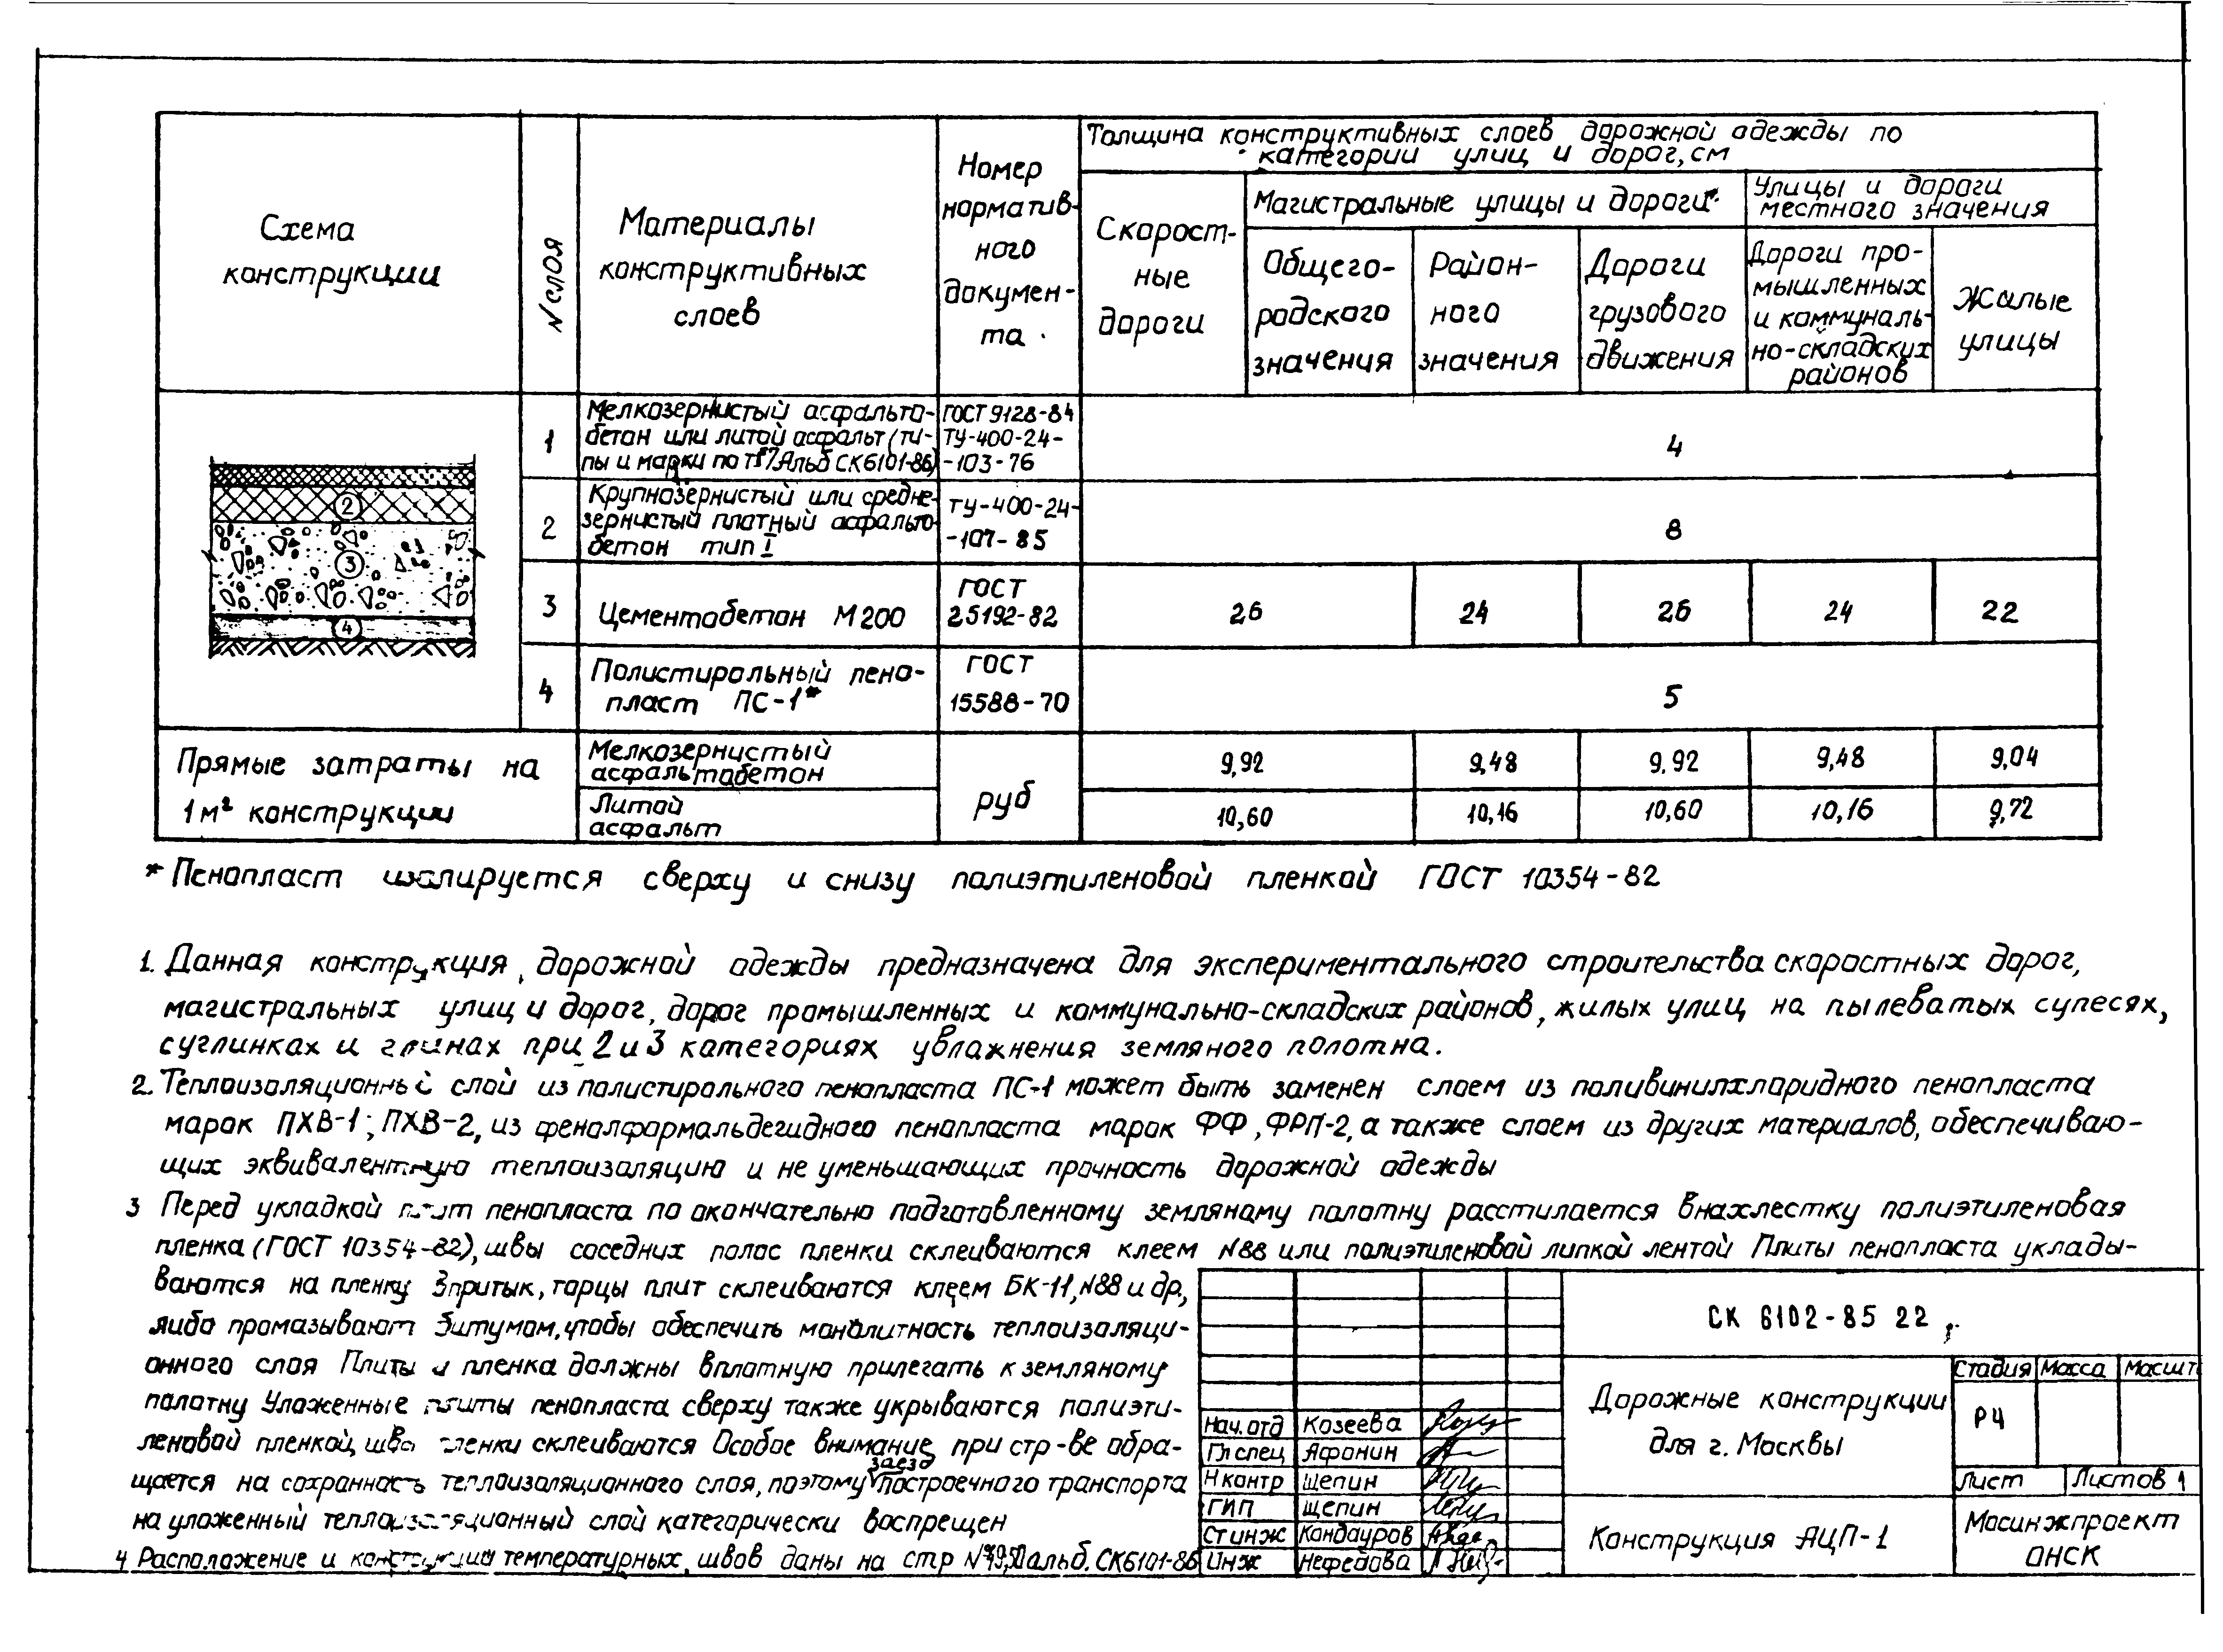 Схема
конструкции
N слоя
Материалы
конструктивных
слоев
Номер
норматив-
ного
докумен-
та
Толщина конструктивных слоев дорожной одежды по
категории улиц и дорог, см
Скорост-
ные
дороги
Магистральные улицы и дороги
Общего-
родского
значения
Район-
ного
значения
Дороги
грузового
движения
Улицы и дороги
местного значения
Дороги про-
мышленных
и коммуналь-
но-складских
районов
Жилые
улицы
1
Мелкозернистый асфальто-
бетон или литой асфальт (ти-
пы и марки по Альб СК6101-86)
ГОСТ 9128-84
ТУ-400-24-
-103-76
4
2
Крупнозернистый или средне-
зернистый плотный асфальто
бетон тип I
ТУ-400-24-
-107-85
8
3
Цементобетон М200
ГОСТ
25192-82
26
24
26
24
22
4
Полистирольный пено-
пласт ПС-1*
ГОСТ
15588-70
5
2
3
4
Прямые затраты на
1м² конструкции
Мелкозернистый
асфальтобетон
руб
9,92
9,48
9.92
9,48
9,04
Литой
асфальт
10,60
10,16
10,60
10,16
9,72
* Пенопласт изолируется сверху и снизу полиэтиленовой пленкой ГОСТ 10354-82
1. Данная конструкция дорожной одежды предназначена для экспериментального строительства скоростных дорог,
магистральных улиц и дорог, дорог промышленных и коммунально-складских районов, жилых улиц на пылеватых супесях,
суглинках и глинах при 2 и 3 категориях увлажнения земляного полотна.
2. Теплоизоляционный слой из полистирольного пенопласта ПС-1 может быть заменен слоем из поливинилхлоридного пенопласта
марок ПХВ-1; ПХВ-2, из фенолформальдегидного пенопласта марок ФФ, ФРП-2, а также слоем из других материалов, обеспечиваю-
щих эквивалентную теплоизоляцию и не уменьшающих прочность дорожной одежды
3 Перед укладкой плит пенопласта по окончательно подготовленному земляному полотну расстилается внахлестку полиэтиленовая
пленка (ГОСТ 10354-82), швы соседних полос пленки склеиваются клеем N88 или полиэтиленовой липкой лентой Плиты пенопласта уклады-
ваются на пленку впритык, торцы плит склеиваются клеем БК-11, N88 и др.,
либо промазывают битумом, чтобы обеспечить монолитность теплоизоляци-
онного слоя Плиты и пленка должны вплотную прилегать к земляному
полотну Уложенные плиты пенопласта сверху также укрываются полиэти-
леновой пленкой, швы пленки склеиваются Особое внимание при стр-ве обра-
щается на сохранность теплоизоляционного слоя, поэтому заезд построечного транспорта
на уложенный теплоизоляционный слой категорически воспрещен
4 Расположение и конструкция температурных швов даны на стр альб. СК6101-86
СК 6102-85 22
Дорожные конструкции
для г. Москвы
Стадия Масса Масшт
РЧ
Лист Листов 1
Конструкция АЦП-1
Мосинжпроект
ОНСК
Нач. отд Козеева
Гл спец Афонин
Н контр Щепин
ГИП Щепин
Ст инж Кондауров
Инж Нефедова